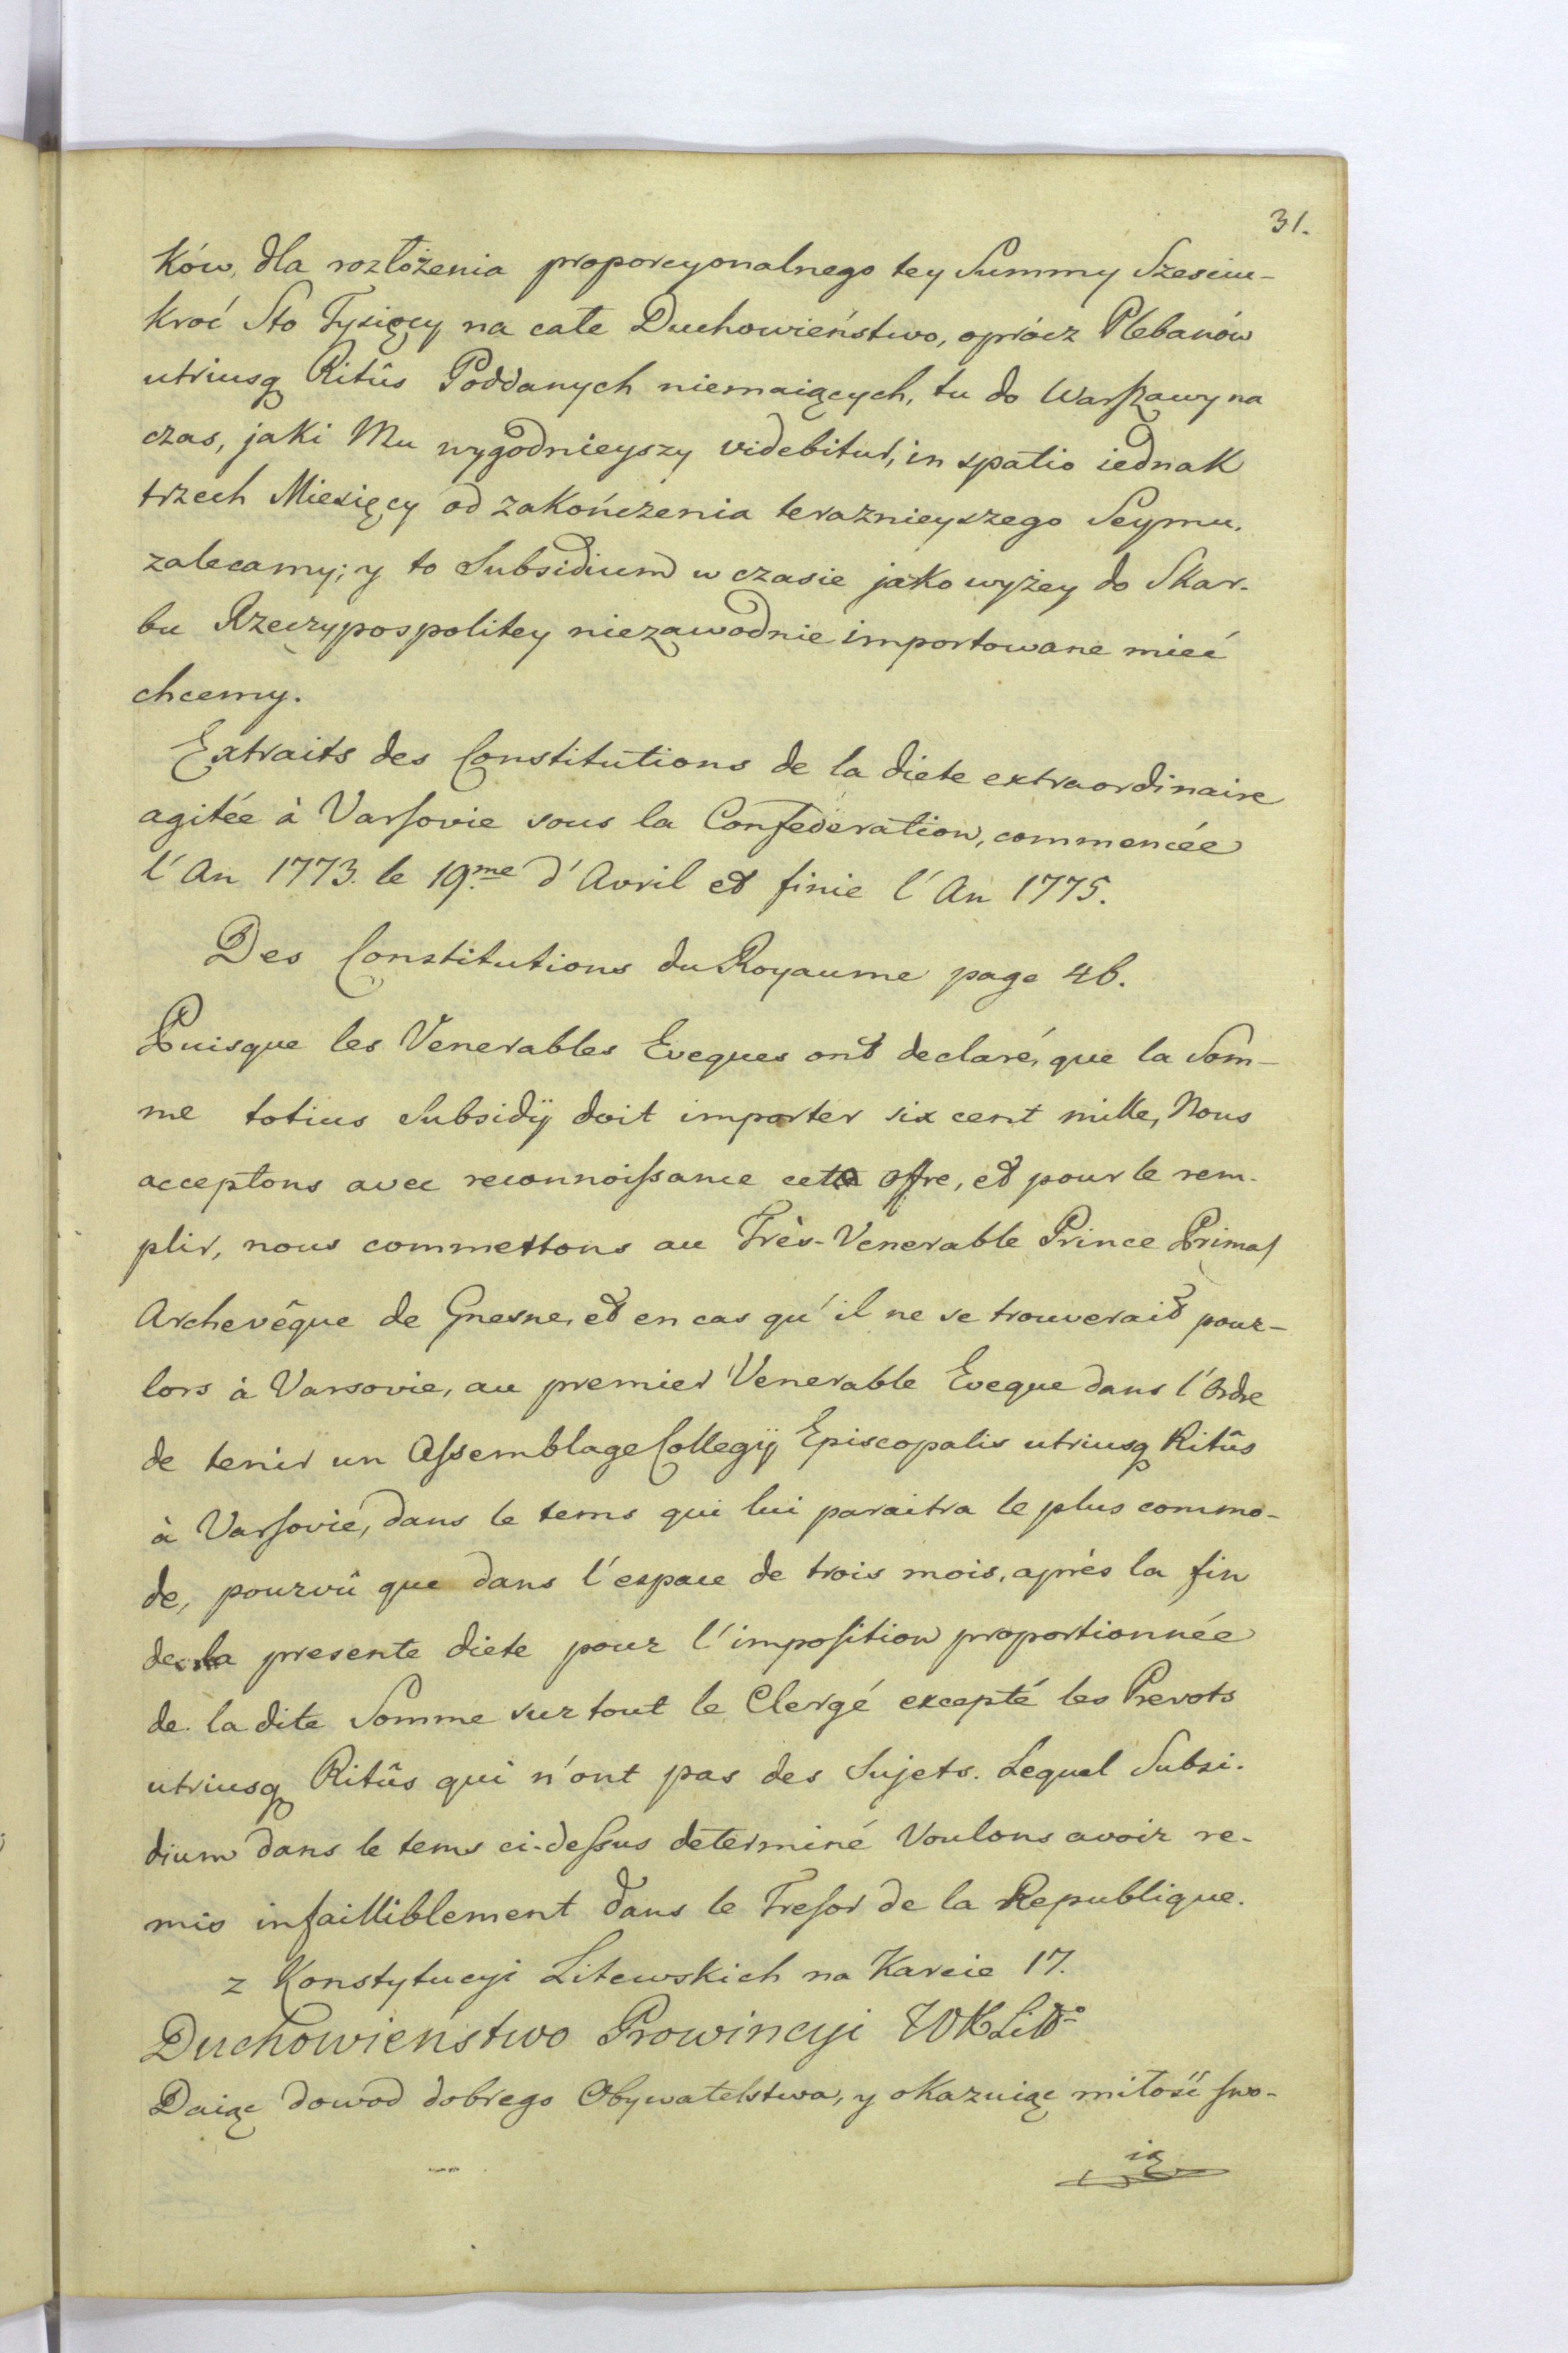 31.
ków, dla rozłożenia proporcyonalnego tey Summy Szesciu-
kroć Sto Tysięcy na całe Duchowieństwo, oprócz Plebanów
utriusq Ritûs Poddanych niemaiących, tu do Warszawy na
czas, jaki Mu wygodnieyszy videbitur, in spatio iednak
trzech Miesięcy od zakończenia teraznieyszego Seymu,
zalecamy; y to Subsidium w czasie jako wyżey do Skar-
bu Rzeczypospolitey niezawodnie importowane mieć
chcemy.
Extraits des Constitutions de la diete extraordinaire
agitée à Varsovie sous la Confederation, commencée
l'An 1773. le 19.me d'Avril et finie l'An 1775.
Des Constitutions du Royaume page 46.
Puisque les Venerables Eveques ont declaré, que la Som-
me totius Subsidÿ doit importer six cent mille, Nous
acceptons avec reconnoissance cette offre, et pour le rem-
plir, nous commettons au Très-Venerable Prince Primas
Archevêque de Gnesne, et en cas qu'il ne se trouverait pour-
lors à Varsovie, au premier Venerable Eveque dans l'Ordre
de tenir un Assemblage Collegÿ Episcopalis utriusq Ritûs
à Varsovie, dans le tems qui lui paraitra le plus commo-
de, pourvû que dans l'espace de trois mois, après la fin
de la presente diete pour l'imposition proportionnée
de la dite Somme sur tout le Clergé excepté les Prevots
utriusq Ritûs qui n'ont pas des Sujets. Lequel Subsi-
dium dans le tems ci-dessus determiné Voulons avoir re-
mis infailliblement dans le Tresor de la Republique.
z Konstytucyi Litewskich na Karcie 17.
Duchowieństwo Prowincyi WXLitto
Daiąc dowod dobrego Obywatelstwa, y okazuiąc miłość swo-
ię